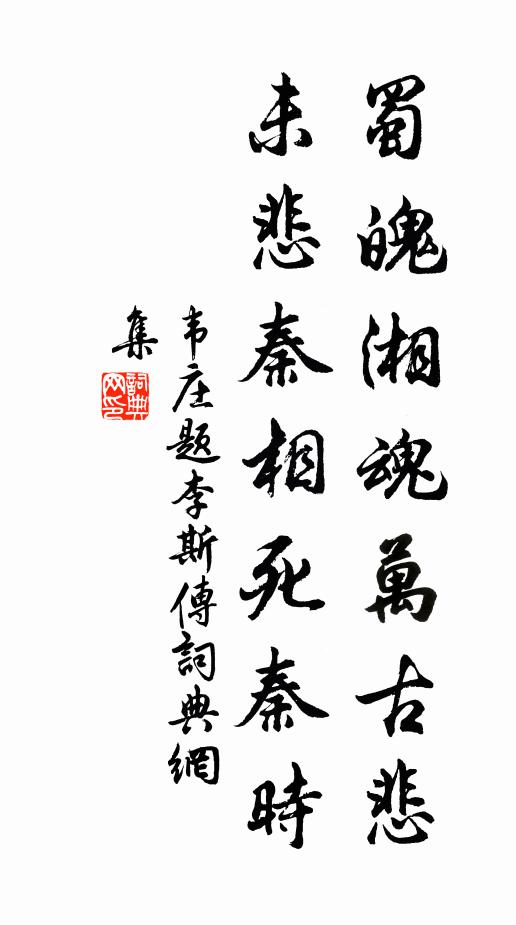 蜀魄湘魂萬古悲
未悲秦相死秦時
韦庄题李斯傳詞典網
集
詞典網印